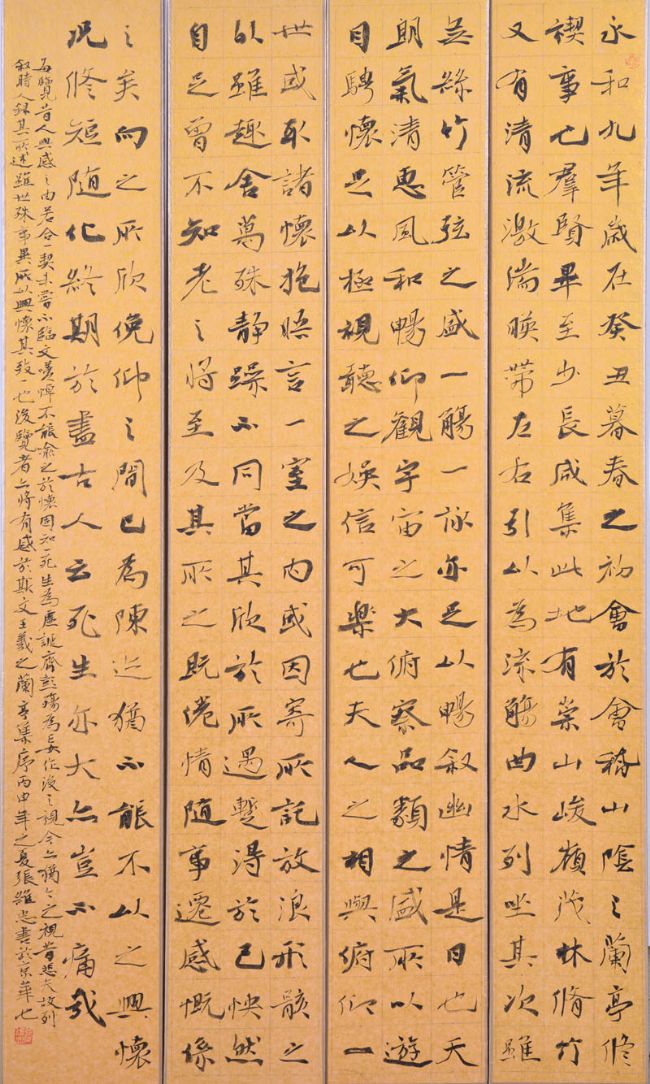 永和九年歲在癸丑暮春之初會於會稽山陰之蘭亭脩
禊事也羣賢畢至少長咸集此地有崇山峻嶺茂林脩竹
又有清流激湍暎帶左右引以為流觴曲水列坐其次雖
無絲竹管弦之盛一觴一詠亦足以暢敘幽情是日也天
朗氣清惠風和暢仰觀宇宙之大俯察品類之盛所以遊
目騁懷足以極視聽之娛信可樂也夫人之相與俯仰一
世或取諸懷抱晤言一室之內或因寄所託放浪形骸之
外雖趣舍萬殊靜躁不同當其欣於所遇暫得於己怏然
自足曾不知老之將至及其所之既倦情隨事遷感慨係
之矣向之所欣俛仰之間已為陳迹猶不能不以之興懷
況脩短隨化終期於盡古人云死生亦大矣豈不痛哉
每覽昔人興感之由若合一契未嘗不臨文嗟悼不能喻之於懷固知一死生為虛誕齊彭殤為妄作後之視今亦猶今之視昔悲夫故列
敘時人錄其所述雖世殊事異所以興懷其致一也後覽者亦將有感於斯文王羲之蘭亭集序丙申年之夏張忠書於京華也